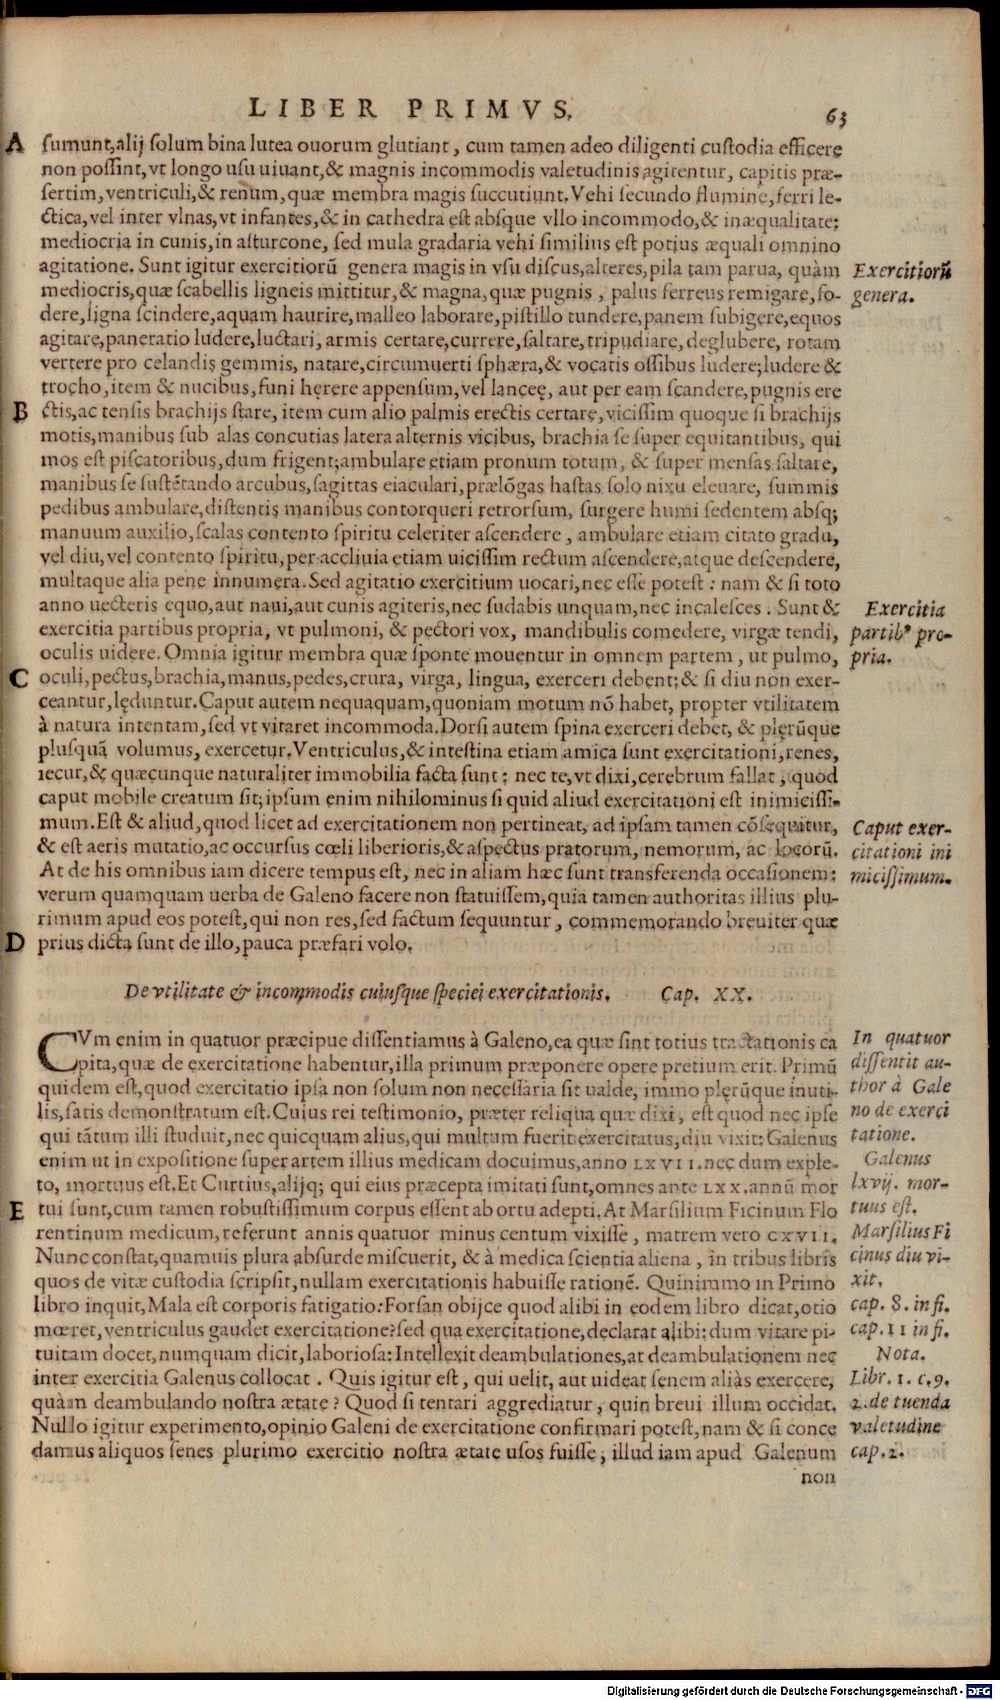 LIBER PRIMVS. 63
A sumunt, alij solum bina lutea ovorum glutiant, cum tamen adeo diligenti custodia efficere
non possint, vt longo usu uiuant, & magnis incommodis valetudinis agitentur, capitis præ-
sertim, ventriculi, & renum, quæ membra magis succutiunt. Vehi secundo flumine, ferri le-
ctica, vel inter vlnas, vt infantes, & in cathedra est absque vllo incommodo, & inæqualitate:
mediocria in cunis, in asturcone, sed mula gradaria vehi similius est potius æquali omnino
agitatione. Sunt igitur exercitiorũ genera magis in vsu discus, alteres, pila tam parua, quàm
mediocris, quæ scabellis ligneis mittitur, & magna, quæ pugnis, palus ferreus remigare, fo-
dere, ligna scindere, aquam haurire, malleo laborare, pistillo tundere, panem subigere, equos
agitare, pancratio ludere, luctari, armis certare, currere, saltare, tripudiare, deglubere, rotam
vertere pro celandis gemmis, natare, circumuerti sphæra, & vocatis ossibus ludere; ludere &
trocho, item & nucibus, funi herere appensum, vel lanceę, aut per eam scandere, pugnis ere
B ctis, ac tensis brachijs stare, item cum alio palmis erectis certare, vicissim quoque si brachijs
motis, manibus sub alas concutias latera alternis vicibus, brachia se super equitantibus, qui
mos est piscatoribus, dum frigent; ambulare etiam pronum totum, & super mensas saltare,
manibus se sustẽtando arcubus, sagittas eiaculari, prælõgas hastas solo nixu eleuare, summis
pedibus ambulare, distentis manibus contorqueri retrorsum, surgere humi sedentem absq;
manuum auxilio, scalas contento spiritu celeriter ascendere, ambulare etiam citato gradu,
vel diu, vel contento spiritu, per accliuia etiam uicissim rectum ascendere, atque descendere,
multaque alia pene innumera. Sed agitatio exercitium uocari, nec esse potest: nam & si toto
anno uecteris equo, aut naui, aut cunis agiteris, nec sudabis unquam, nec incalesces. Sunt &
exercitia partibus propria, vt pulmoni, & pectori vox, mandibulis comedere, virgæ tendi,
oculis uidere. Omnia igitur membra quæ sponte mouentur in omnem partem, ut pulmo,
C oculi, pectus, brachia, manus, pedes, crura, virga, lingua, exerceri debent; & si diu non exer-
ceantur, lęduntur. Caput autem nequaquam, quoniam motum nõ habet, propter vtilitatem
à natura intentam, sed vt vitaret incommoda. Dorsi autem spina exerceri debet, & plerũque
plusquã volumus, exercetur. Ventriculus, & intestina etiam amica sunt exercitationi, renes,
iecur, & quæcunque naturaliter immobilia facta sunt: nec te, vt dixi, cerebrum fallat, quod
caput mobile creatum sit; ipsum enim nihilominus si quid aliud exercitationi est inimicissi-
mum. Est & aliud, quod licet ad exercitationem non pertineat, ad ipsam tamen cõsequitur,
& est aeris mutatio, ac occursus cœli liberioris, & aspectus pratorum, nemorum, ac locorũ.
At de his omnibus iam dicere tempus est, nec in aliam hæc sunt transferenda occasionem:
verum quamquam uerba de Galeno facere non statuissem, quia tamen authoritas illius plu-
rimum apud eos potest, qui non res, sed factum sequuntur, commemorando breuiter quæ
D prius dicta sunt de illo, pauca præfari volo.
Exercitiorũ
genera.
Exercitia
partibꝰ pro-
pria.
Caput exer-
citationi ini
micissimum.
De vtilitate & incommodis cuiusque speciei exercitationis. Cap. XX.
CVm enim in quatuor præcipue dissentiamus à Galeno, ea quæ sint totius tractationis ca
pita, quæ de exercitatione habentur, illa primum præponere opere pretium erit. Primũ
quidem est, quod exercitatio ipsa non solum non necessaria sit ualde, immo plerũque inuti-
lis, satis demonstratum est. Cuius rei testimonio, præter reliqua quæ dixi, est quod nec ipse
qui tãtum illi studuit, nec quicquam alius, qui multum fuerit exercitatus, diu vixit: Galenus
enim ut in expositione super artem illius medicam docuimus, anno LXVII. nec dum exple-
to, mortuus est. Et Curtius, alijq; qui eius præcepta imitati sunt, omnes ante LXX. annũ mor
E tui sunt, cum tamen robustissimum corpus essent ab ortu adepti. At Marsilium Ficinum Flo
rentinum medicum, referunt annis quatuor minus centum vixisse, matrem vero CXVII.
Nunc constat, quamuis plura absurde miscuerit, & à medica scientia aliena, in tribus libris
quos de vitæ custodia scripsit, nullam exercitationis habuisse rationẽ. Quinimmo in Primo
libro inquit, Mala est corporis fatigatio: Forsan obijce quod alibi in eodem libro dicat, otio
mœret, ventriculus gaudet exercitatione? sed qua exercitatione, declarat alibi: dum vitare pi-
tuitam docet, numquam dicit, laboriosa: Intellexit deambulationes, at deambulationem nec
inter exercitia Galenus collocat. Quis igitur est, qui uelit, aut uideat senem aliàs exercere,
quàm deambulando nostra ætate? Quod si tentari aggrediatur, quin breui illum occidat.
Nullo igitur experimento, opinio Galeni de exercitatione confirmari potest, nam & si conce
damus aliquos senes plurimo exercitio nostra ætate usos fuisse, illud iam apud Galenum
non
In quatuor
dissentit au-
thor à Gale
no de exerci
tatione.
Galenus
lxvij. mor-
tuus est.
Marsilius Fi
cinus diu vi-
xit.
cap. 8. in fi.
cap. 11 in fi.
Nota.
Libr. 1. c. 9.
2. de tuenda
valetudine
cap. 2.
Digitalisierung gefördert durch die Deutsche Forschungsgemeinschaft - DFG